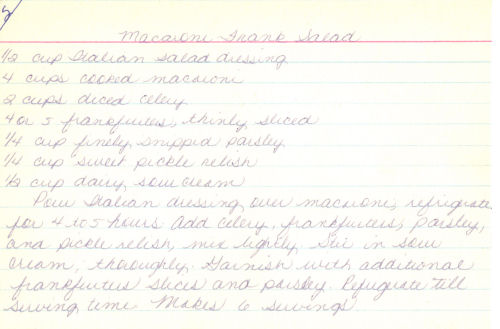 Macaroni Frank Salad
1/2 cup Italian salad dressing
4 cups cooked macaroni
2 cups diced celery
4 or 5 frankfurters, thinly sliced
1/4 cup finely snipped parsley
1/4 cup sweet pickle relish
1/2 cup dairy sour cream
Pour Italian dressing over macaroni, refrigerate
for 4 to 5 hours Add celery, frankfurters, parsley,
and pickle relish, mix lightly. Stir in sour
cream, thoroughly. Garnish with additional
frankfurters slices and parsley. Refrigerate till
serving time Makes 6 servings